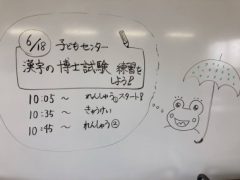 6/18 子どもセンター
漢字の博士試験 練習を
しよう!!
10:05 ～ れんしゅう①スタート!!
10:35 ～ きゅうけい
10:45 ～ れんしゅう②